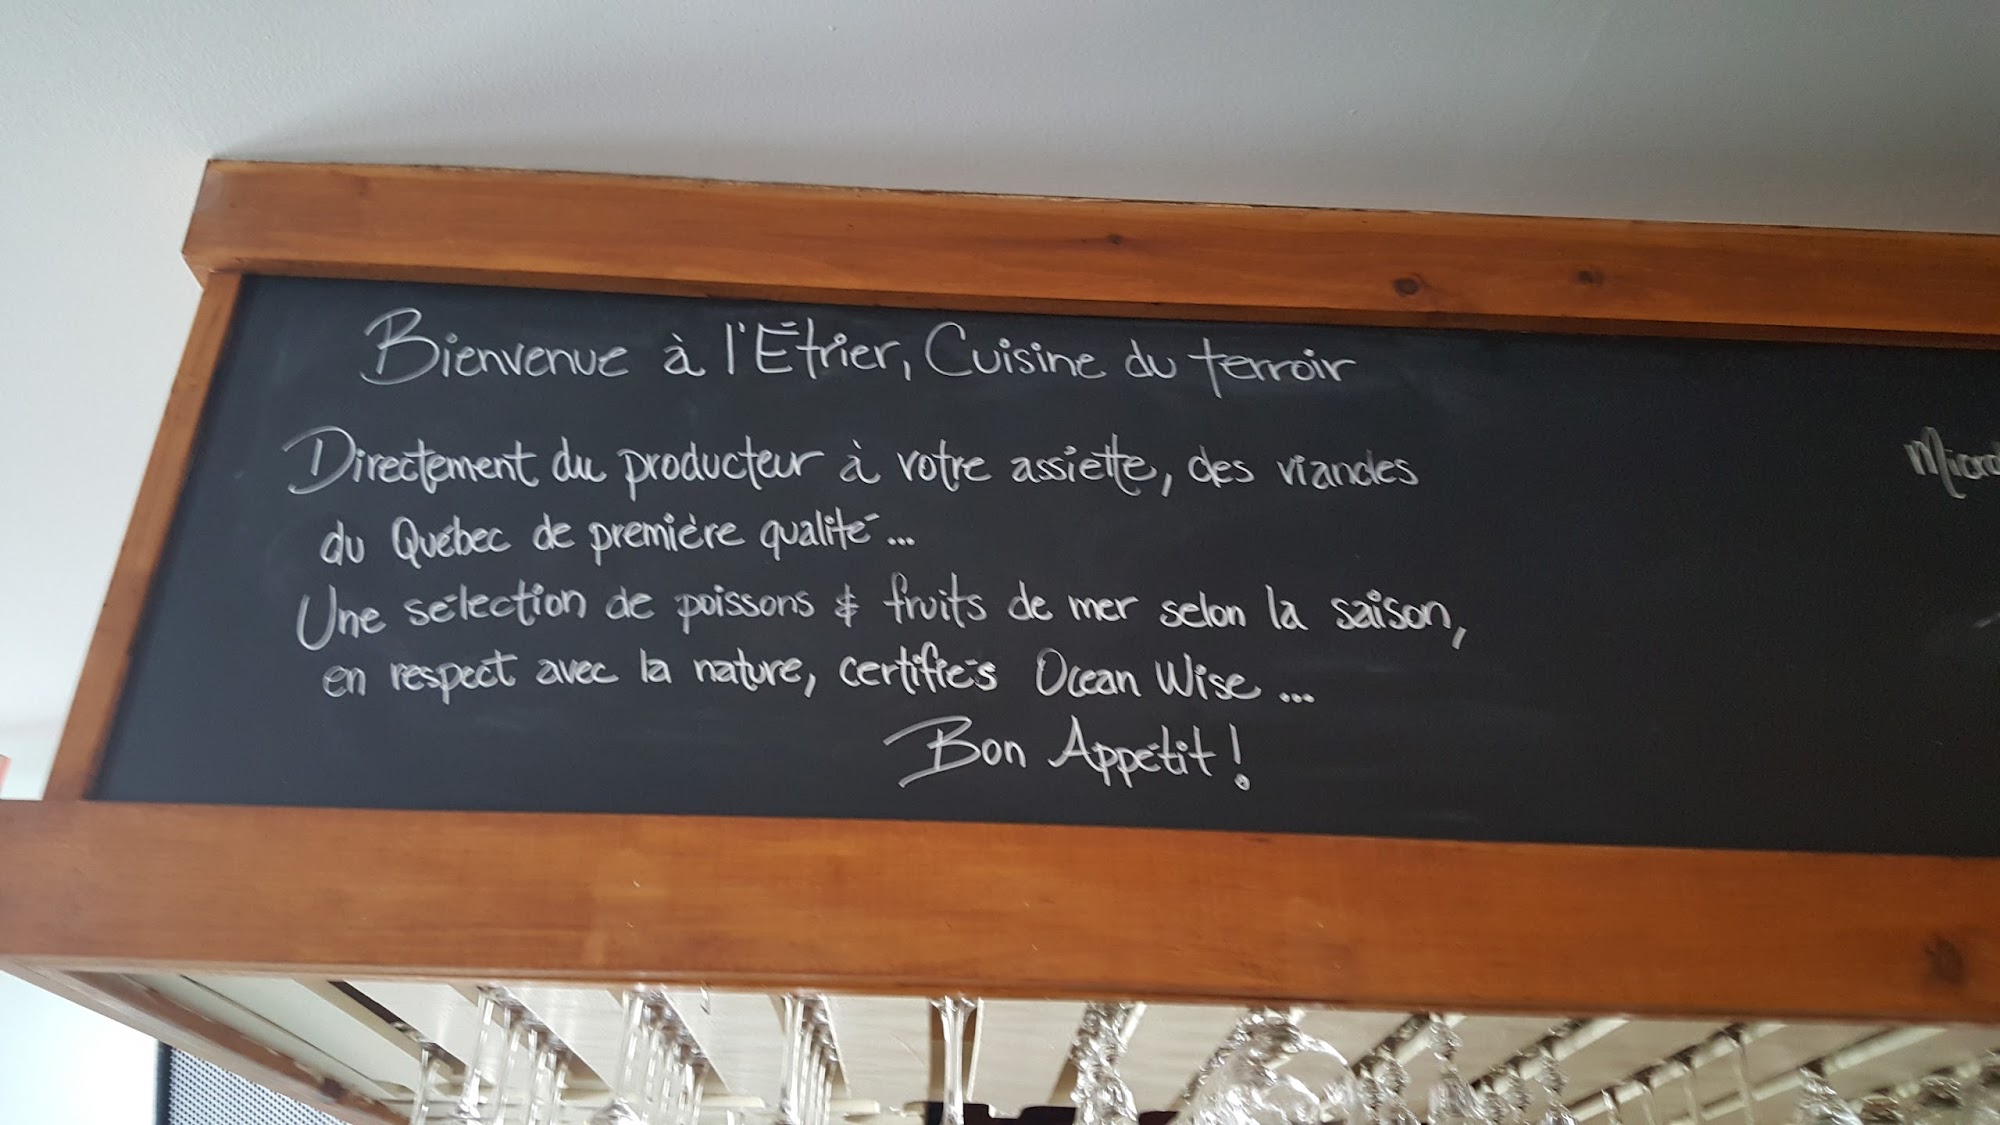 Bienvenue à l'Étrier, Cuisine du terroir
Directement du producteur à votre assiette, des viandes
du Québec de première qualité...
Une sélection de poissons & fruits de mer selon la saison,
en respect avec la nature, certifiés Ocean Wise...
Bon Appétit!